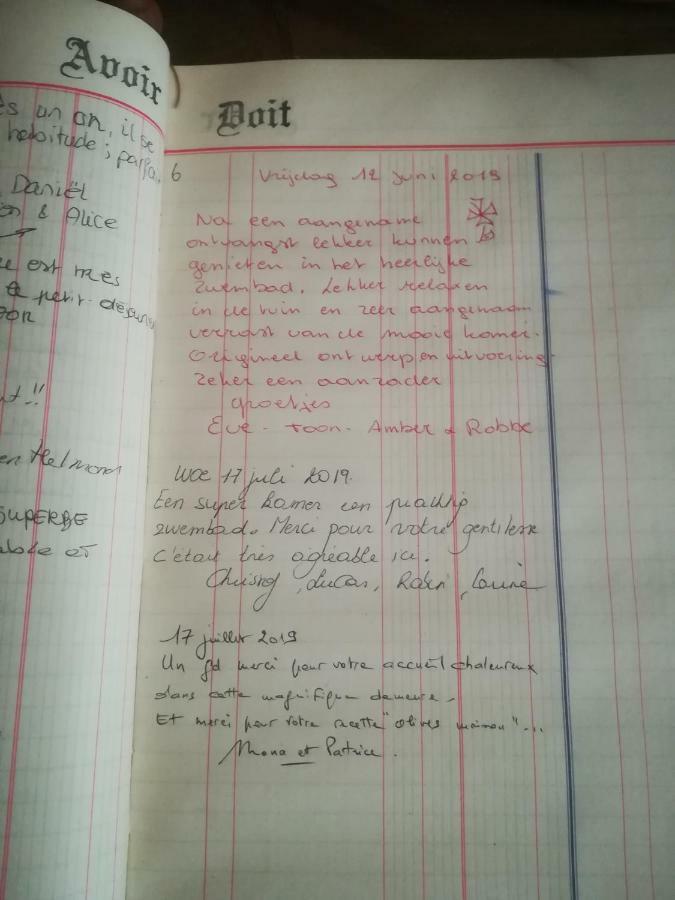 Avoir
un an, il se
habitude; parfa.
Daniël
& Alice
est très
petit-déjeuner
!!
en Helmond
SUPERBE
Doit
6
Vrijdag 12 juni 2019
Na een aangename
ontvangst lekker kunnen
genieten in het heerlijke
zwembad. Lekker relaxen
in de tuin en zeer aangenaam
verrast van de mooie kamer.
Origineel ontwerp en uitvoering
zeker een aanrader
groetjes
Eve - Toon - Amber & Robbe
Woe 17 juli 2019.
Een super kamer een prachtig
zwembad. Merci pour votre gentillesse
c'était très agréable ici.
, Lucas, Robin,
17 juillet 2019
Un gd merci pour votre accueil chaleureux
dans cette magnifique demeure.
Et merci pour votre recette "olives maison"...
Mona et Patrice.